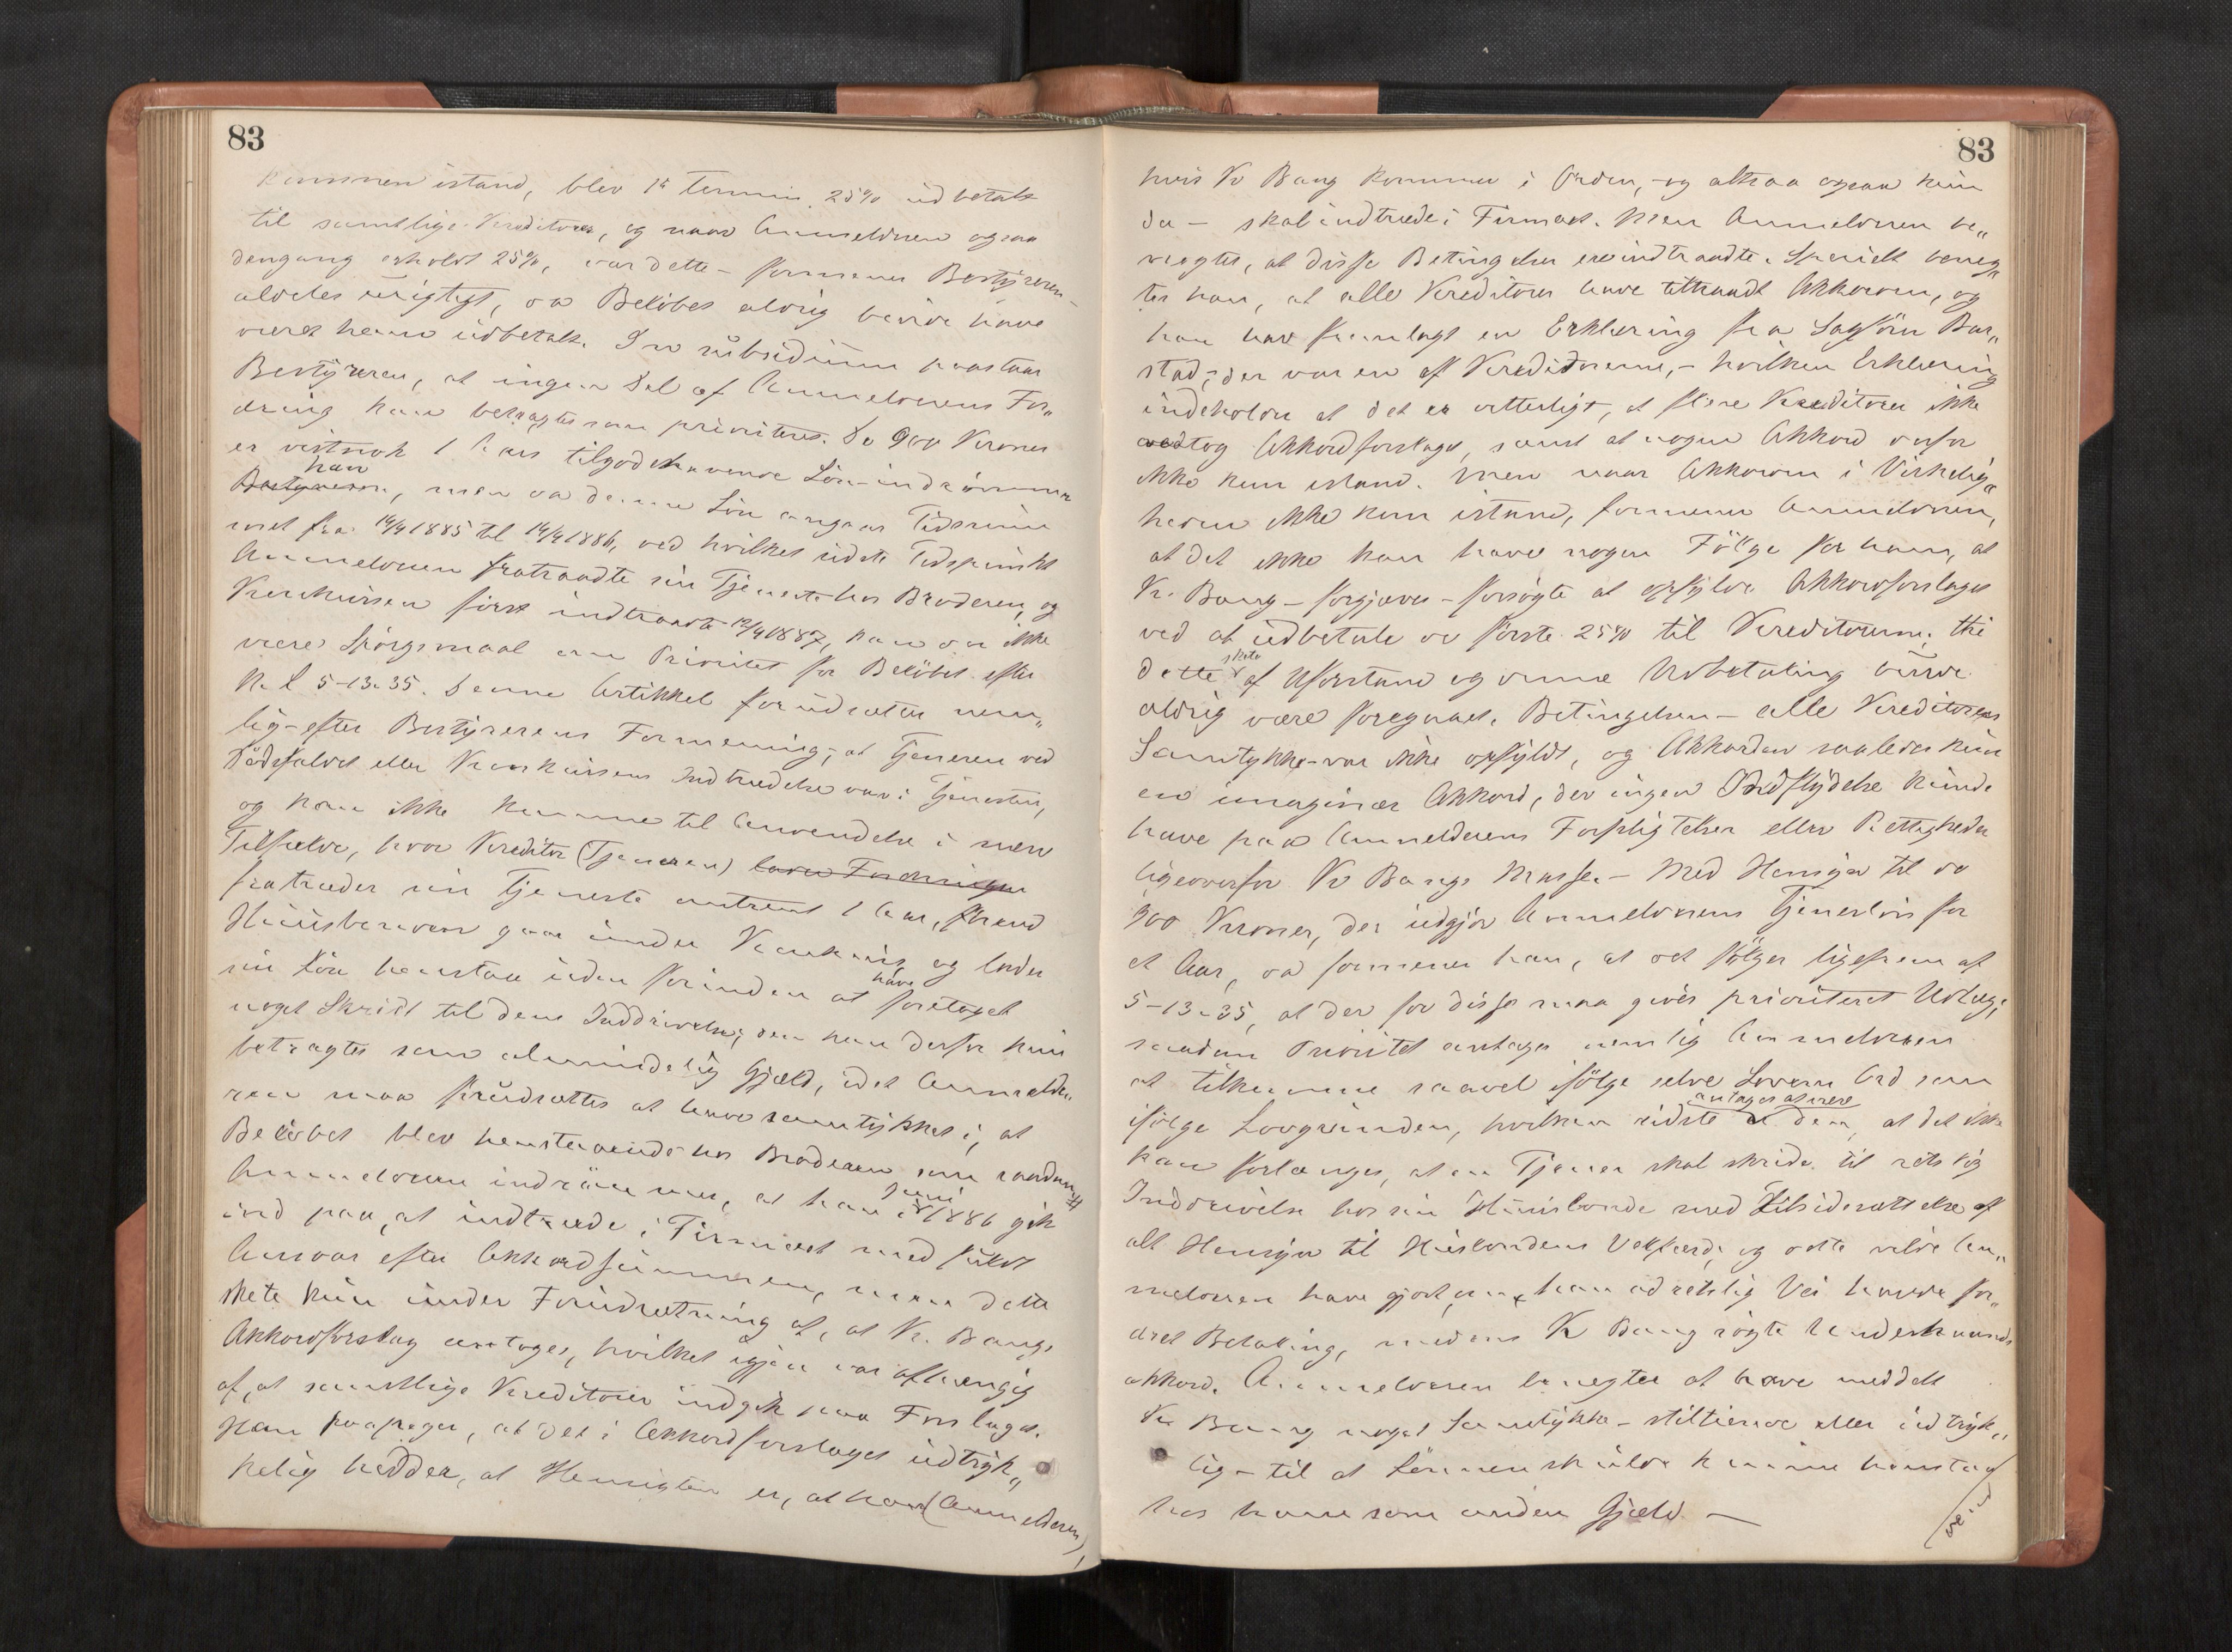 83
kommen istand, blev 1ste Termin 25% udbetalt
til samtlige Kreditorer, og naar Anmelderen ogsaa
dengang erholdt 25%, var dette – formener Bestyreren –
aldeles urigtigt, da Beløbet aldrig burde have
været ham udbetalt. In subsidium paastaar
Bestyreren, at ingen Del af Anmelderens For„
dring kan betragtes som prioriteret. De 900 Kroner
er vistnok 1 Aars tilgodehavende Løn – indrømmer
han
Bestyreren, men da denne Løn angaar Tidsrum„
met fra 14/4 1885 til 14/4 1886, ved hvilket sidste Tidspunkt
Anmelderen fratraadte sin Tjeneste hos Broderen, og
Konkursen først indtraadte 12/4 1887, kan der ikke
være Spørgsmaal om Prioritet for Beløbet efter
N. L 5-13-35. Denne Artikkel forudsætter nem„
lig – efter Bestyrerens Formening, at Tjeneren ved
Dødsfaldet eller Konkursens Indtrædelse var i Tjenesten,
og kan ikke komme til Anvendelse i
Tilfælde, hvor Kreditor (Tjeneren) lader Fordringen
fratræder sin Tjeneste omtrent 1 Aar, førend
Huusbonden gaar under Konkurs, og lader
sin Løn henstaa uden forinden at
have
foretaget
noget Skridt til dens Inddrivelse; den kan derfor kun
betragtes som almindelig Gjæld, idet Anmelde„
ren maa forudsættes at have samtykket i, at
Beløbet blev henstaaende hos Broderen som saadan.
Anmelderen indrømmer, at han i
Juni
1886 gik
ind paa, at indtræde i Firmaet med fuldt
Ansvar efter Akkordsummen, men dette
skete kun under Forudsætning af, at Kr. Bangs
Akkordforslag antoges, hvilket igjen var afhængig
af, at samtlige Kreditorer indgik paa Forslaget.
Han paapeger, at det i Akkordforslaget udtryk„
kelig hedder, at Hensigten er, at han (Anmelderen),
83
hvis Kr Bang kommer i Orden, – og altsaa ogsaa kun
da – skal indtræde i Firmaet. Men Anmelderen be„
nægter, at disse Betingelser ere indtraadte. Specielt beneg„
ter han, at alle Kreditorer have tiltraadt Akkorden, og
han har fremlagt en Erklæring fra Sagfører Bar„
stad, – der var en af Kreditorerne, – hvilken Erklæring
indeholder at det er vitterligt, at flere Kreditorer ikke
vedtog Akkordforslaget, samt at nogen Akkord derfor
ikke kom istand. Men naar Akkorden i Virkelig„
heden ikke kom istand, formener Anmelderen,
at det ikke kan have nogen Følge for ham, at
Kr. Bang – forgjæves – forsøgte at opfylde Akkordforslaget
ved at udbetale de første 25% til Kreditorerne; thi
dette
skete
af Uforstand og denne Udbetaling burde
aldrig være foregaaet. Betingelsen – alle Kreditorers
Samtykke – var ikke opfyldt, og Akkorden saaledes kun
en imaginær Akkord, der ingen Indflydelse kunde
have paa Anmelderens Forpligtelser eller Rettigheder
ligeoverfor Kr Bangs Masse. – Med Hensyn til de
900 Kroner, der udgjør Anmelderens Tjenerløn for
et Aar, da formener han, at det følger ligefrem af
5-13-35, at der for disse maa gives prioriteret Udlæg;
saadan Prioritet antages nemlig Anmelderen
at tilkomme saavel ifølge selve Lovens Ord som
ifølge Lovgrunden, hvilken sidste
antages at være
den, at det ikke
kan forlanges, at en Tjener skal skride til retslig
Inddrivelse hos sin Huusbonde med Tilsidesættelse af
alt Hensyn til Husbondens Velfærd; og dette vilde An„
melderen have gjort om han ad retslig Vei havde for„
dret Betaling, medens Kr Bang søgte Underhaands
akkord. Anmelderen benegter at have meddelt
Kr Bang noget Samtykke – stiltiende eller udtryk„
lig – til at Lønnen skulde kunne henstaa
hos ham som anden Gjæld. —